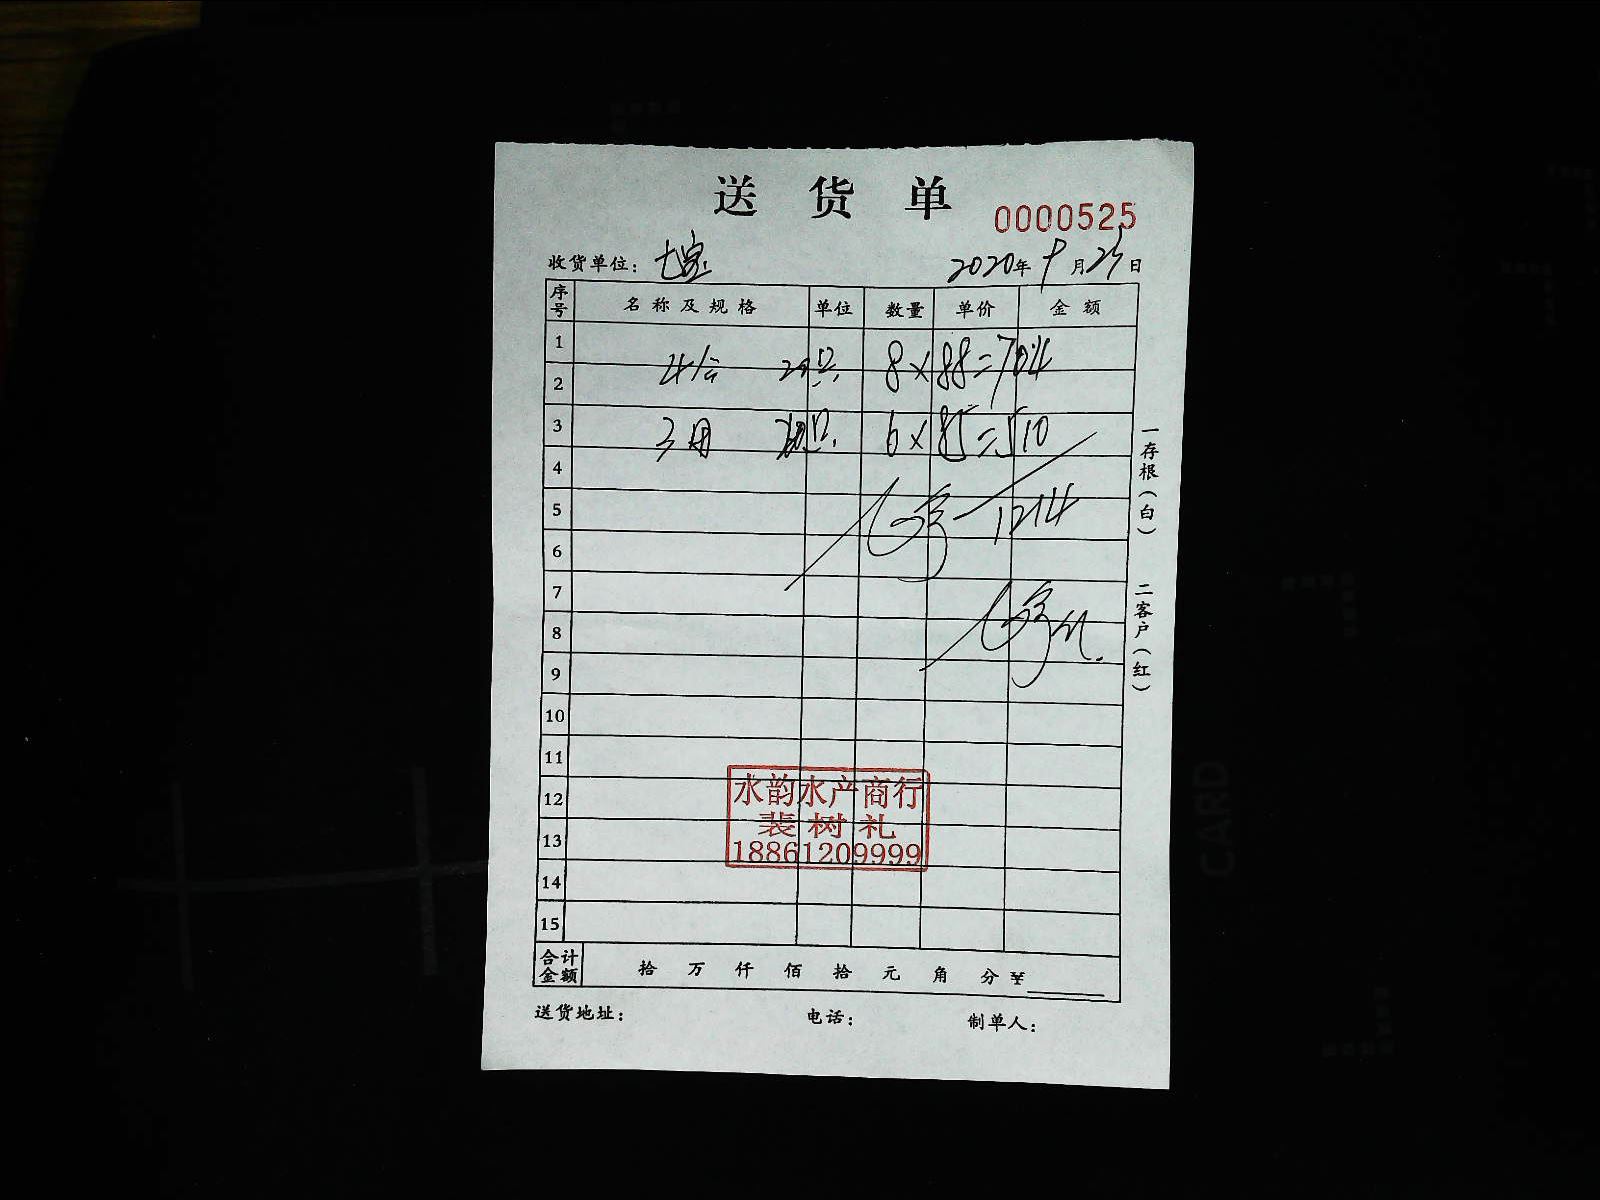 送货单
0000525
收货单位: 七宝 2020年9月25日
序号 名称及规格 单位 数量 单价 金额
1
4公 只 8×88=704
2
3 3母 只 6×85=510
4
5 1214
6
7
8
9
10
11
12
13
14
15
水韵水产商行
裴树礼
18861209999
合计金额 拾 万 仟 佰 拾 元 角 分 ¥
送货地址: 电话: 制单人:
一存根(白)
二客户(红)